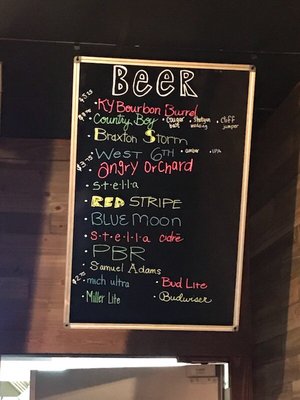 BEER
· KY Bourbon Barrel
· Country Boy · Cougar Bait · Shotgun Wedding · Cliff Jumper
· Braxton Storm
· West 6th · amber · IPA
· Angry Orchard
· s·t·e·l·l·a
· RED STRIPE
· BLUE MOON
· s·t·e·l·l·a cidre
· PBR
· Samuel Adams
· mich ultra · Bud Lite
· Miller Lite · Budwiser